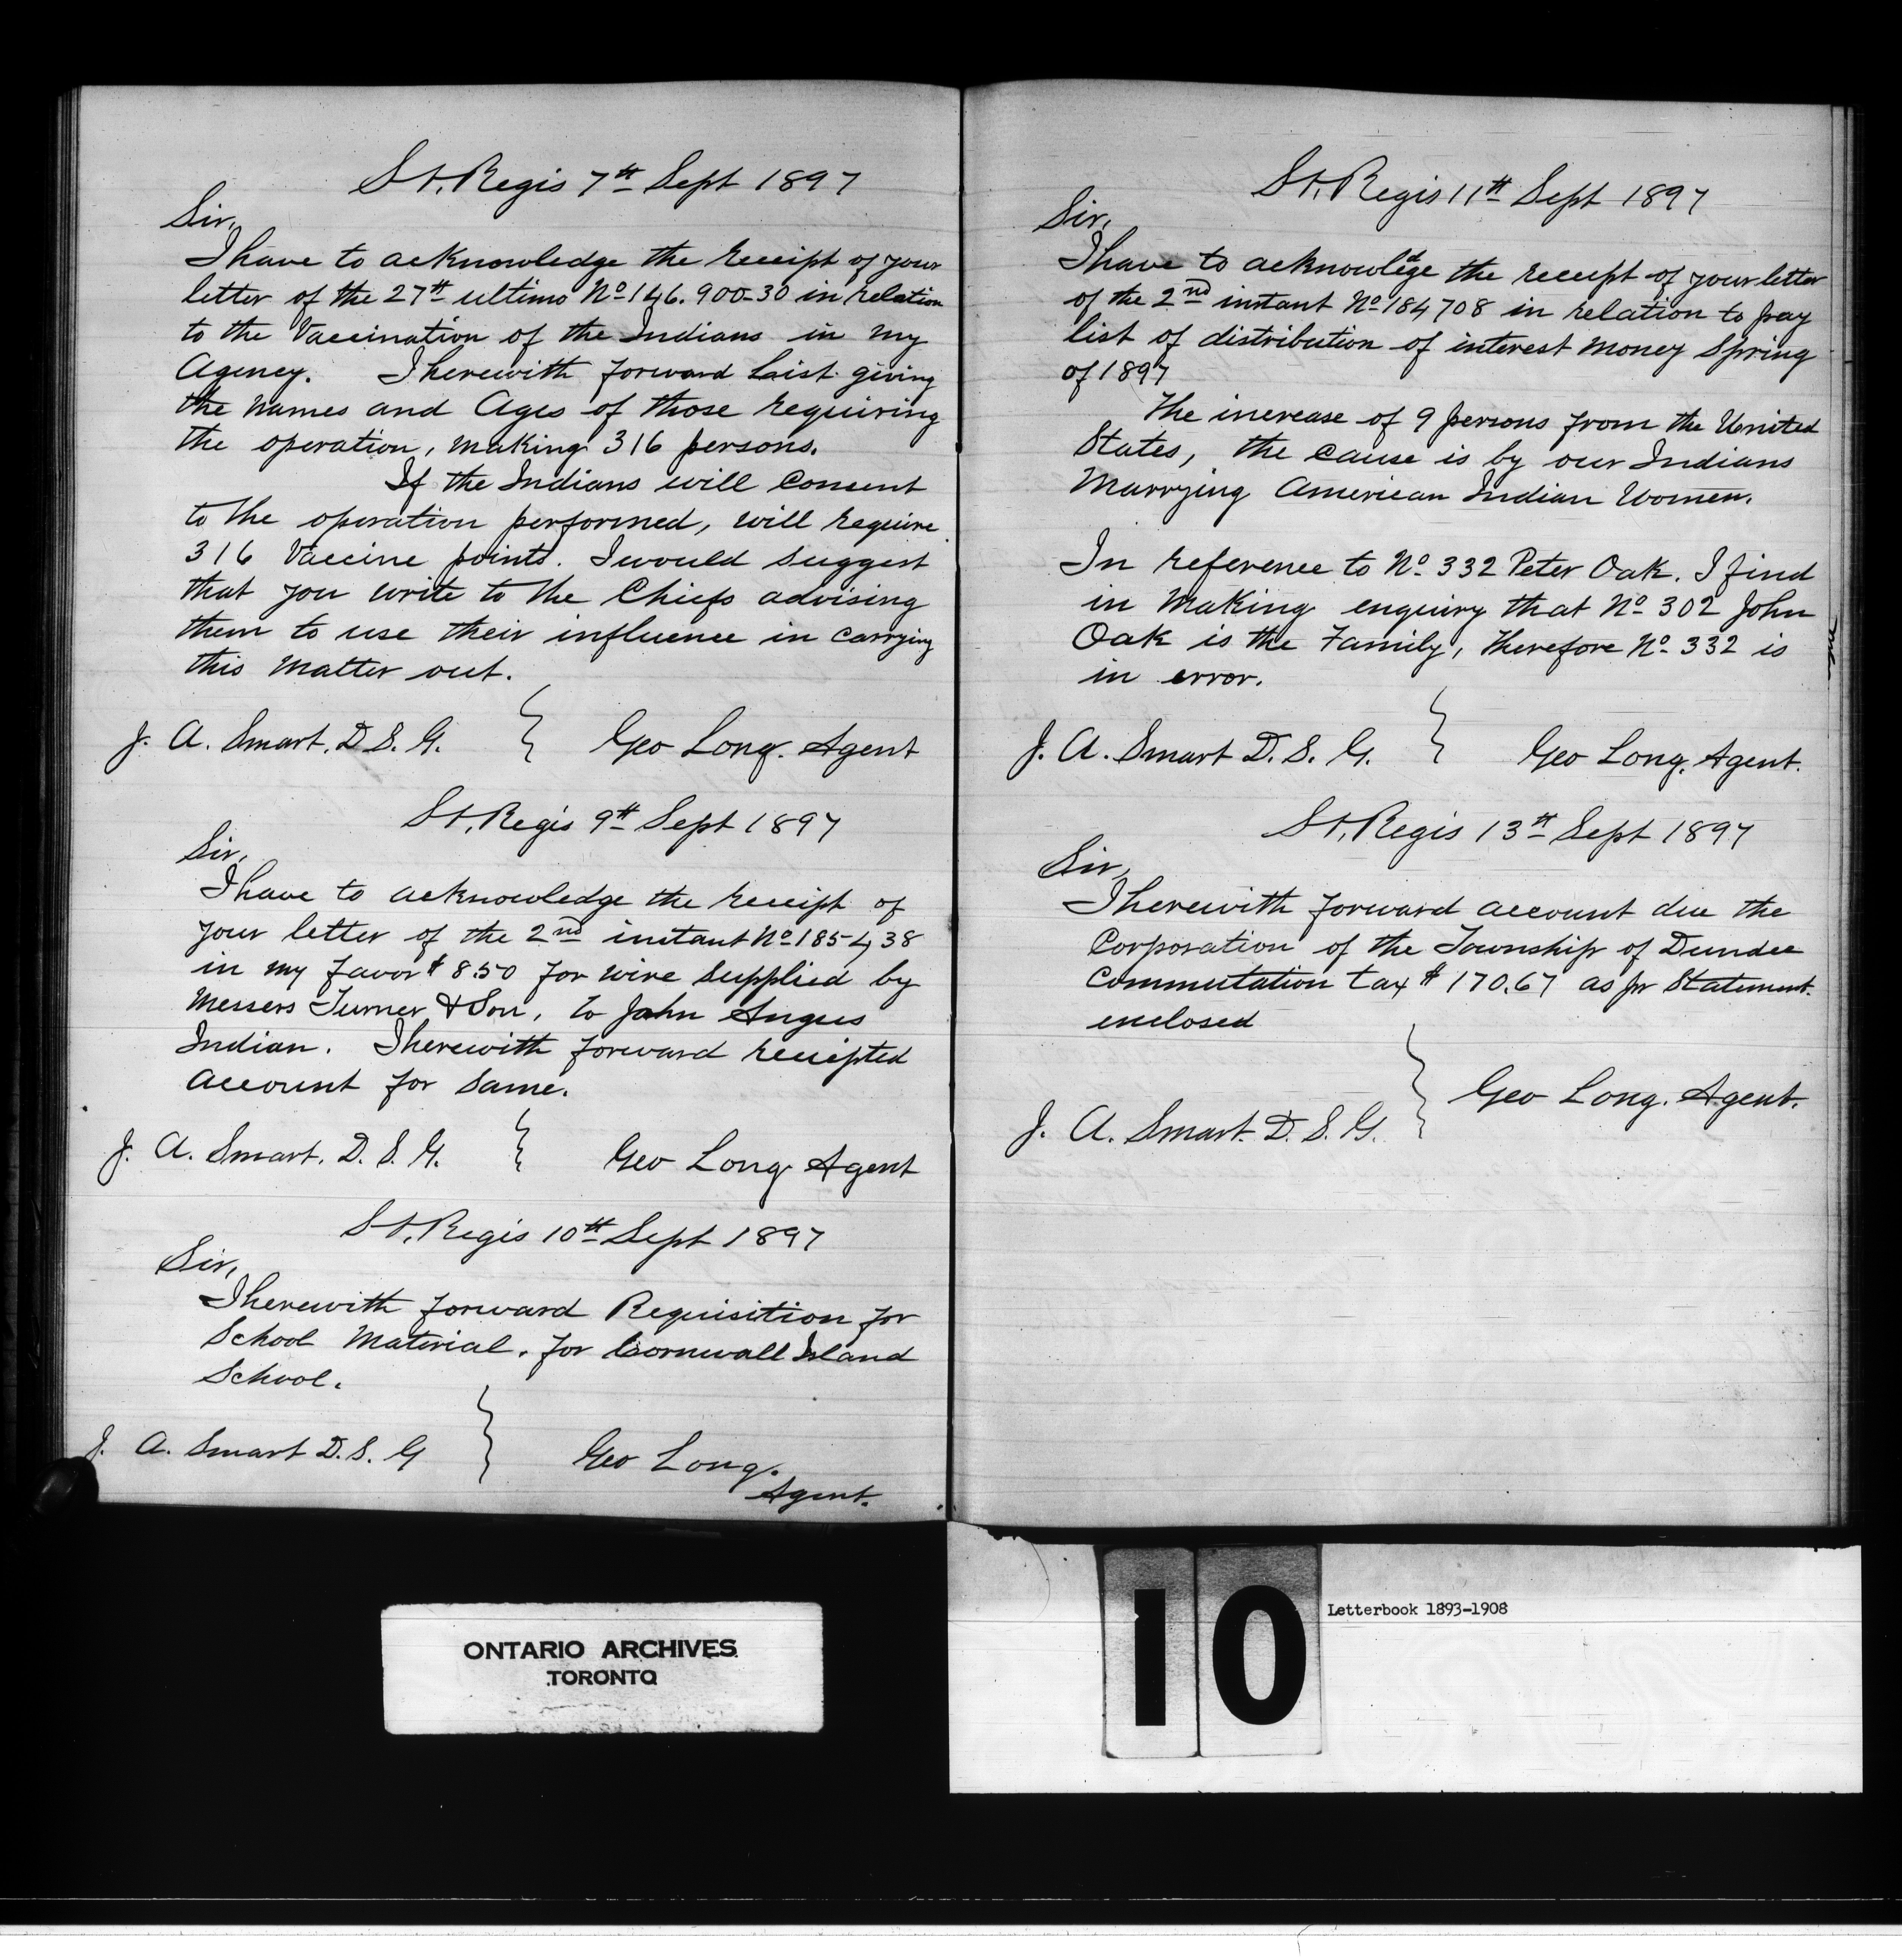 St. Regis 7th Sept 1897
Sir,
I have to acknowledge the receipt of your
letter of the 27th ultimo No 146.900-30 in relation
to the Vaccination of the Indians in my
Agency. I herewith forward List giving
the names and Ages of those requiring
the operation, making 316 persons.
If the Indians will Consent
to the operation performed, will require
316 Vaccine points. I would suggest
that you write to the Chiefs advising
them to use their influence in carrying
this matter out.
J. A. Smart. D. S. G. Geo Long. Agent
St. Regis 9th Sept 1897
Sir,
I have to acknowledge the receipt of
your letter of the 2nd instant No 185438
in my favor $ 8.50 for wire supplied by
Messers Turner & Son, to John Angus
Indian. I herewith forward receipted
account for same.
J. A. Smart. D. S. G. Geo Long Agent
St. Regis 10th Sept 1897
Sir,
I herewith forward Requisition for
School Material. for Cornwall Island
School.
J. A. Smart D. S. G Geo Long.
Agent.
St. Regis 11th Sept 1897
Sir,
I have to acknowledge the receipt of your letter
of the 2nd instant No 184708 in relation to pay
list of distribution of interest money Spring
of 1897
The increase of 9 persons from the United
States, the cause is by our Indians
Marrying American Indian Women.
In reference to No 332 Peter Oak. I find
in making enquiry that No 302 John
Oak is the Family, therefore No 332 is
in error.
J. A. Smart D. S. G. Geo Long. Agent.
St. Regis 13th Sept 1897
Sir,
I herewith forward account due the
Corporation of the Township of Dundee
Commutation tax $ 170.67 as pr Statement.
enclosed
Geo Long. Agent.
J. A. Smart. D. S. G.
ONTARIO ARCHIVES
TORONTO
10
Letterbook 1893-1908